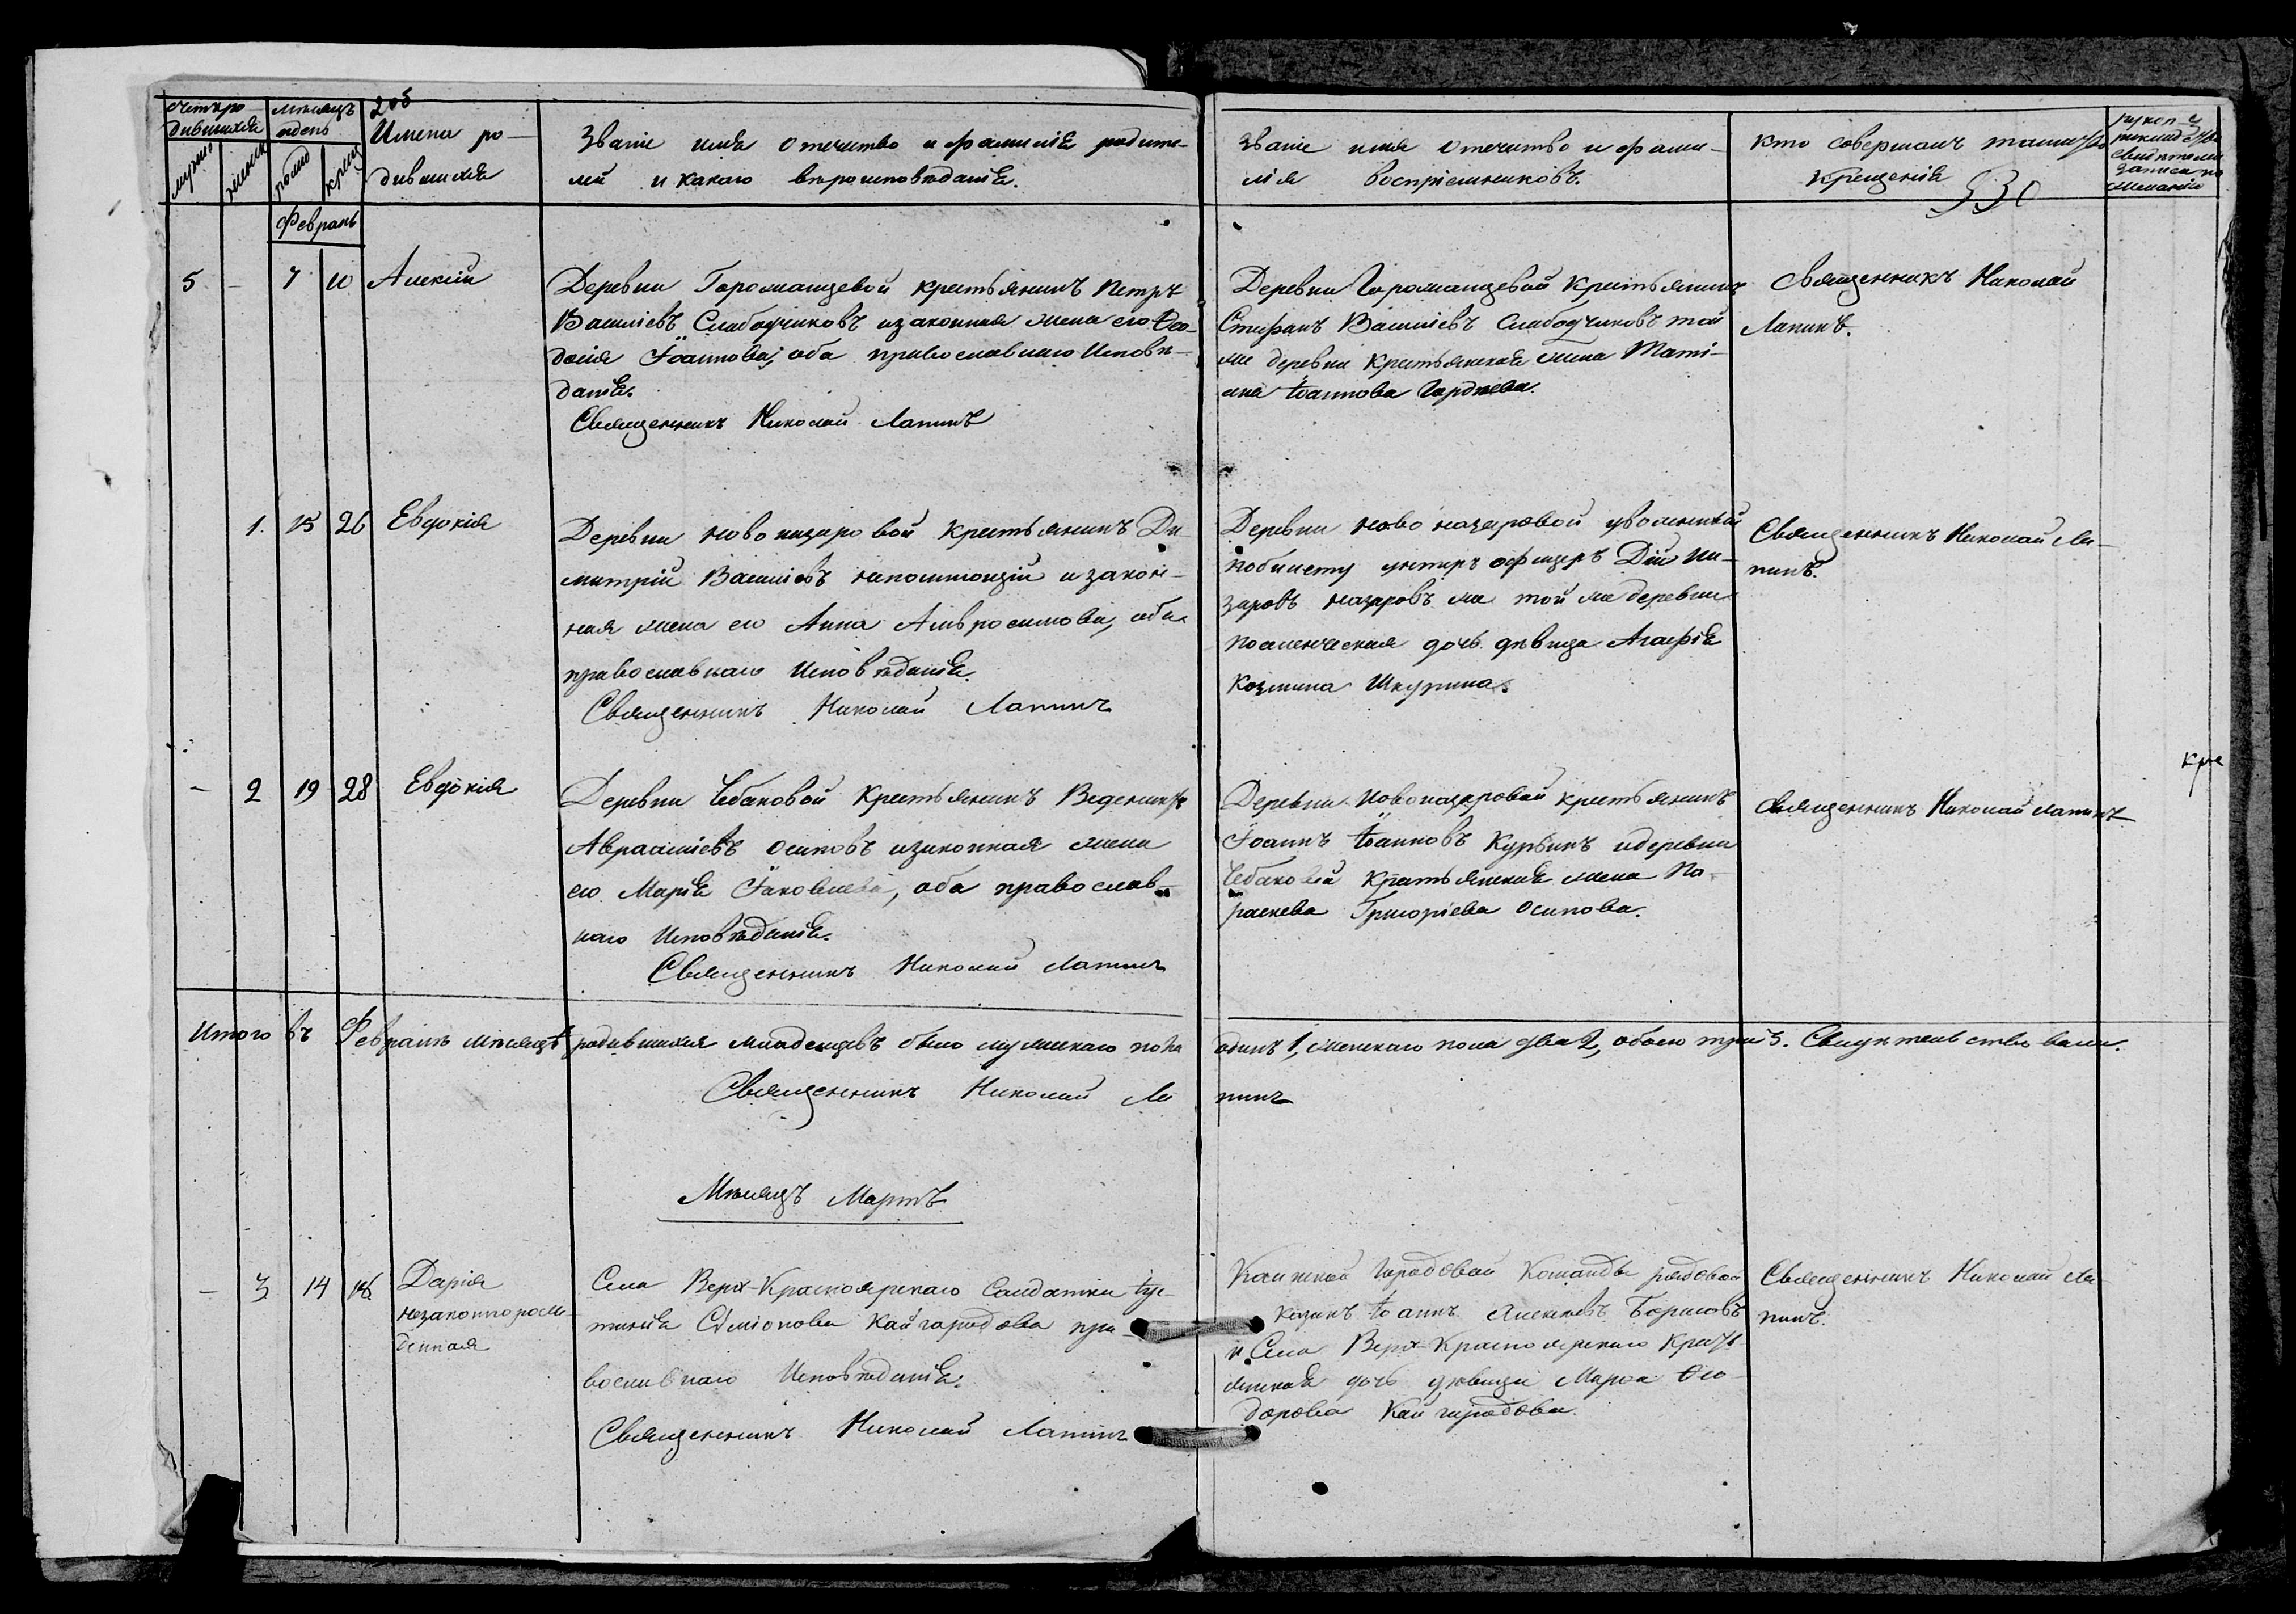 205
Счетъ ро-
дившихся
мужес
женск
мѣсяцъ
и день
рожд
крещ
Имена ро-
дившихся
Званіе имя отечество и фамилія родите-
лей и какого вѣроисповѣданія.
Званіе имя отечество и фами-
лія воспріемниковъ.
кто совершалъ таинство
крещенія
530
Февраль
5 - 7 10 Алексій
Деревни Горомащевой крестьянинъ Петръ
Василіевъ Слабодчиковъ изаконная жена его Ѳео-
досія Іоаннова, оба православнаго Исповѣ-
данія.
Священникъ Николай Лапинъ
Деревни Горомащевой крестьянинъ
Стефанъ Василіевъ Слабодчиковъ той
же деревни крестьянская жена Таті-
ана Іоаннова Гордѣева.
Священникъ Николай
Лапинъ.
1. 15 26 Евдокія
Деревни Новоназаровой крестьянинъ Ди-
митрій Василіевъ непомнющій изакон-
ная жена его Анна Амвросимова, оба
православнаго Исповѣданія.
Священникъ Николай Лапинъ
Деревни Новоназаровой уволенный
побилету унтеръ офицеръ Дій На-
заровъ Назаровъ же той же деревни
поселенческая дочь дѣвица Агафія
Козмина Шкурина.
Священникъ Николай Ла-
пинъ.
- 2 19 28 Евдокія
Деревни Чебаковой Крестьянинъ Веденихтъ
Авраамієвъ Осиповъ изаконная жена
его Марія Іаковлева, оба православ-
наго Исповѣданія.
Священникъ Николай Лапинъ
Деревни Новоназаровой крестьянинъ
Іоаннъ Іоанновъ Курвинъ идеревни
Чебаковой крестьянская жена Па-
раскева Григоріева Осипова.
Священникъ Николай Лапинъ
кре
Итого въ Февралѣ мѣсяцѣ родившихся младенцевъ было мужескаго пола одинъ 1, женскаго пола два 2, обоего три 3. Свидѣтельствовали.
Священникъ Николай Лапинъ
Мѣсяцъ Мартъ
- 3 14 16 Дарія
незаконнорож-
денная
Села Верх-Красноярскаго Солдатки Іус-
тинія Симіонова Кайгародова пра-
вославнаго Исповѣданія.
Священникъ Николай Лапинъ
Каинской Городовой Команды рядовой
казакъ Іоаннъ Алексѣевъ Борисовъ
и Села Верх-Красноярскаго Кресть-
янская дочь дѣвица Марѳа Ѳео-
дорова Кайгародова.
Священникъ Николай Ла-
пинъ.